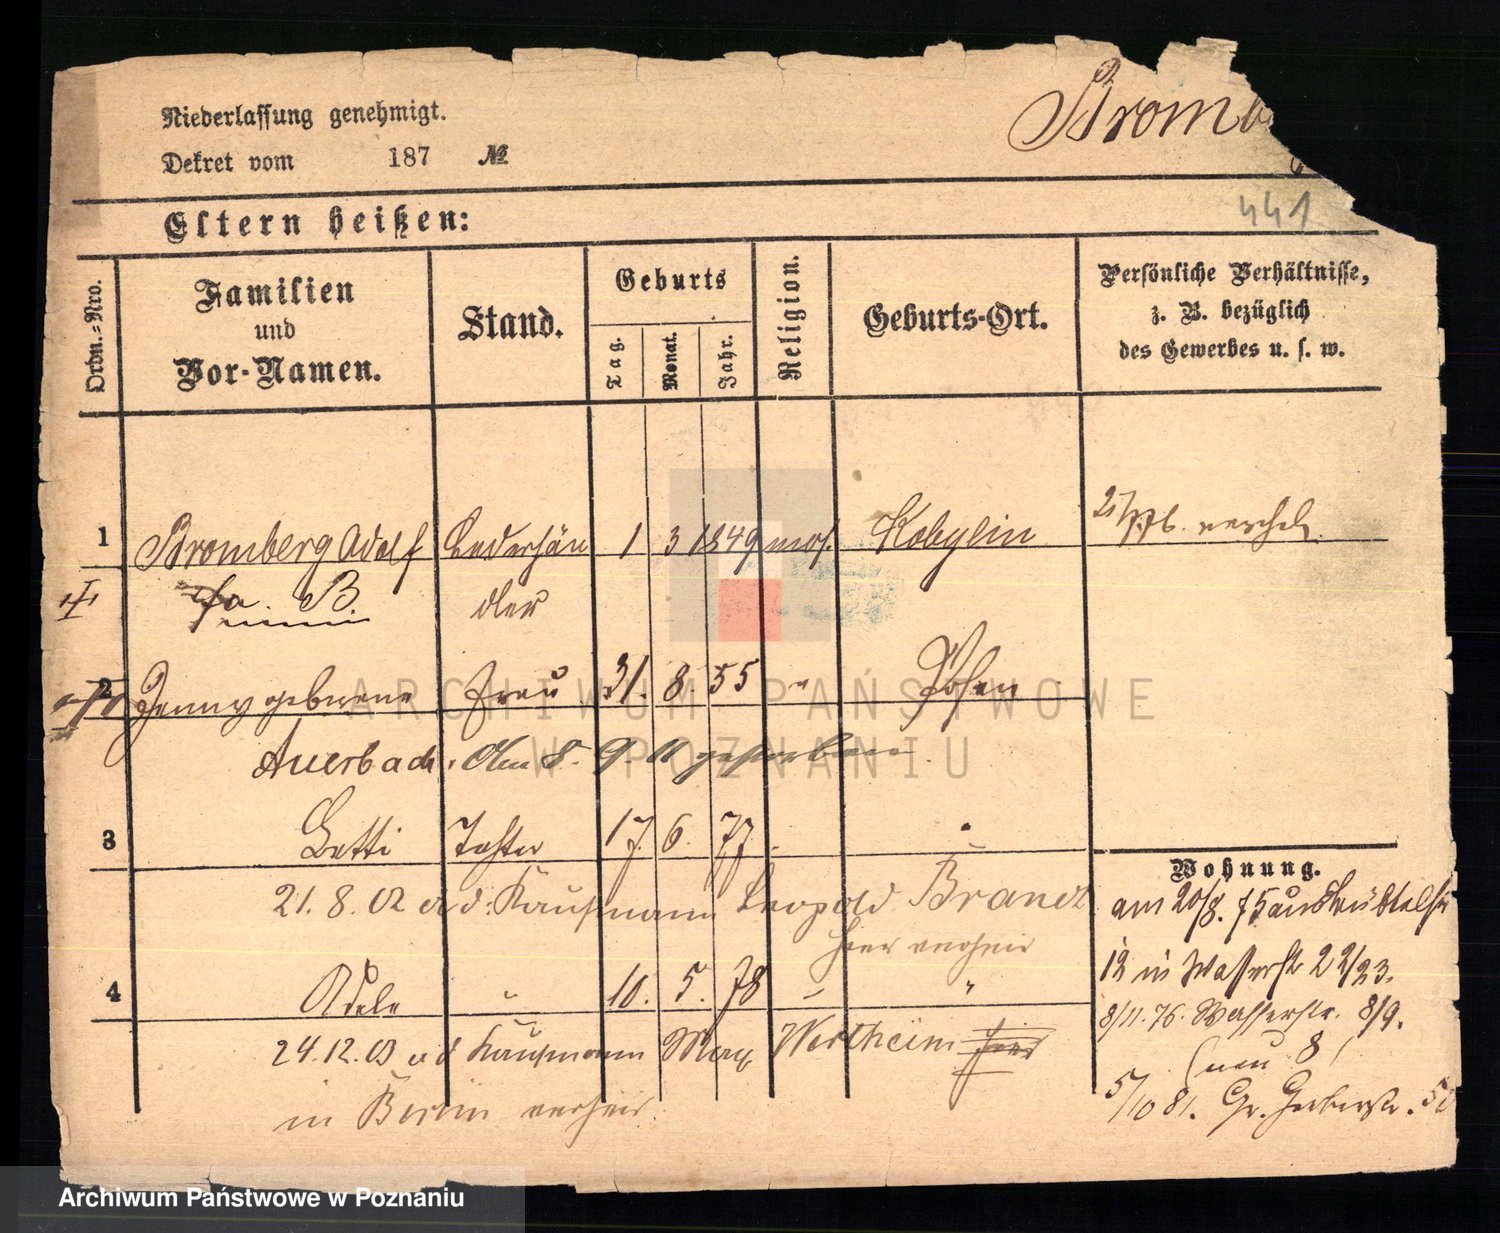 Niederlassung genehmigt.
Dekret vom 187 №
Bromb
441
Eltern heißen:
Ordn.-Nro.
Familien und Vor-Namen.
Stand.
Geburts
Tag.
Monat.
Jahr.
Religion.
Geburts-Ort.
Persönliche Verhältnisse, z. B. bezüglich des Gewerbes u. s. w.
1 Bromberg Adolf Lederhän 1 3 1849 mos. Kobylin
fa. B. dler
2 Jenny geborene Frau 31. 8. 55 " Posen
Auerbach. Am 8. 9. 11 gestorben.
3 Betti Tochter 17. 6. 77
21. 8. 02 a. d. Kaufmann Leopold Brandt
hier verheir
4 Adele " 10. 5. 78 " "
24.12.03 a d Kaufmann Max Wertheim hier
in Berlin verheir.
Wohnung.
am 20/8. 75 aus
12 in Wasserstr 22/23.
8/11. 76. Wasserstr. 8/9.
(neu 8)
5/10 81. Gr. Gerberstr.
ARCHIWUM PAŃSTWOWE
W POZNANIU
Archiwum Państwowe w Poznaniu